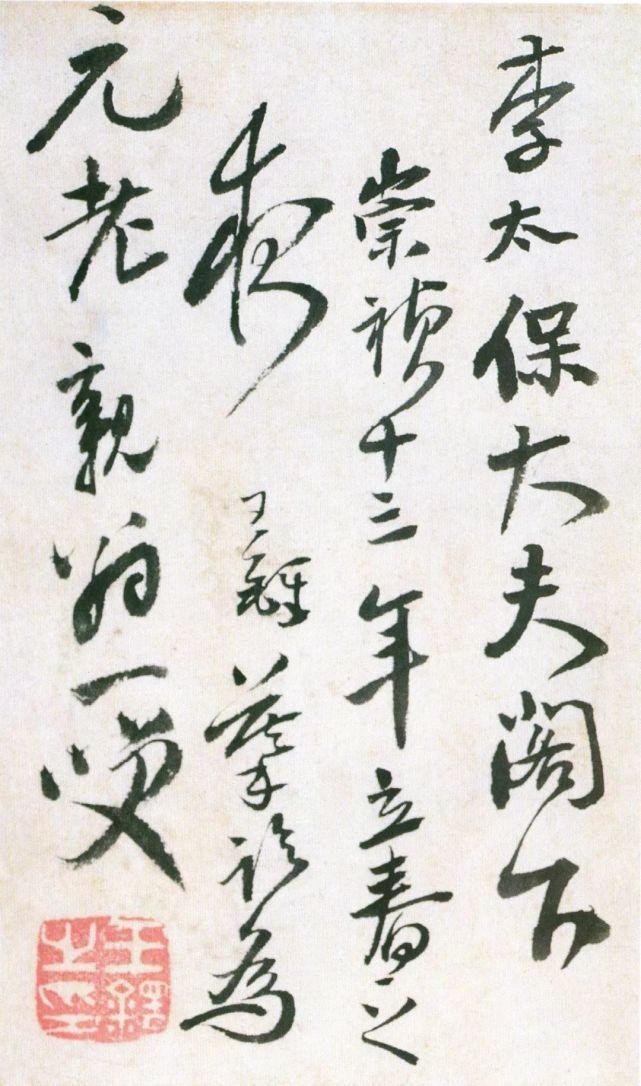 李太保大夫閣下
崇禎十三年立春之
夜王鐸摹為
元老親翁一笑
王鐸之印